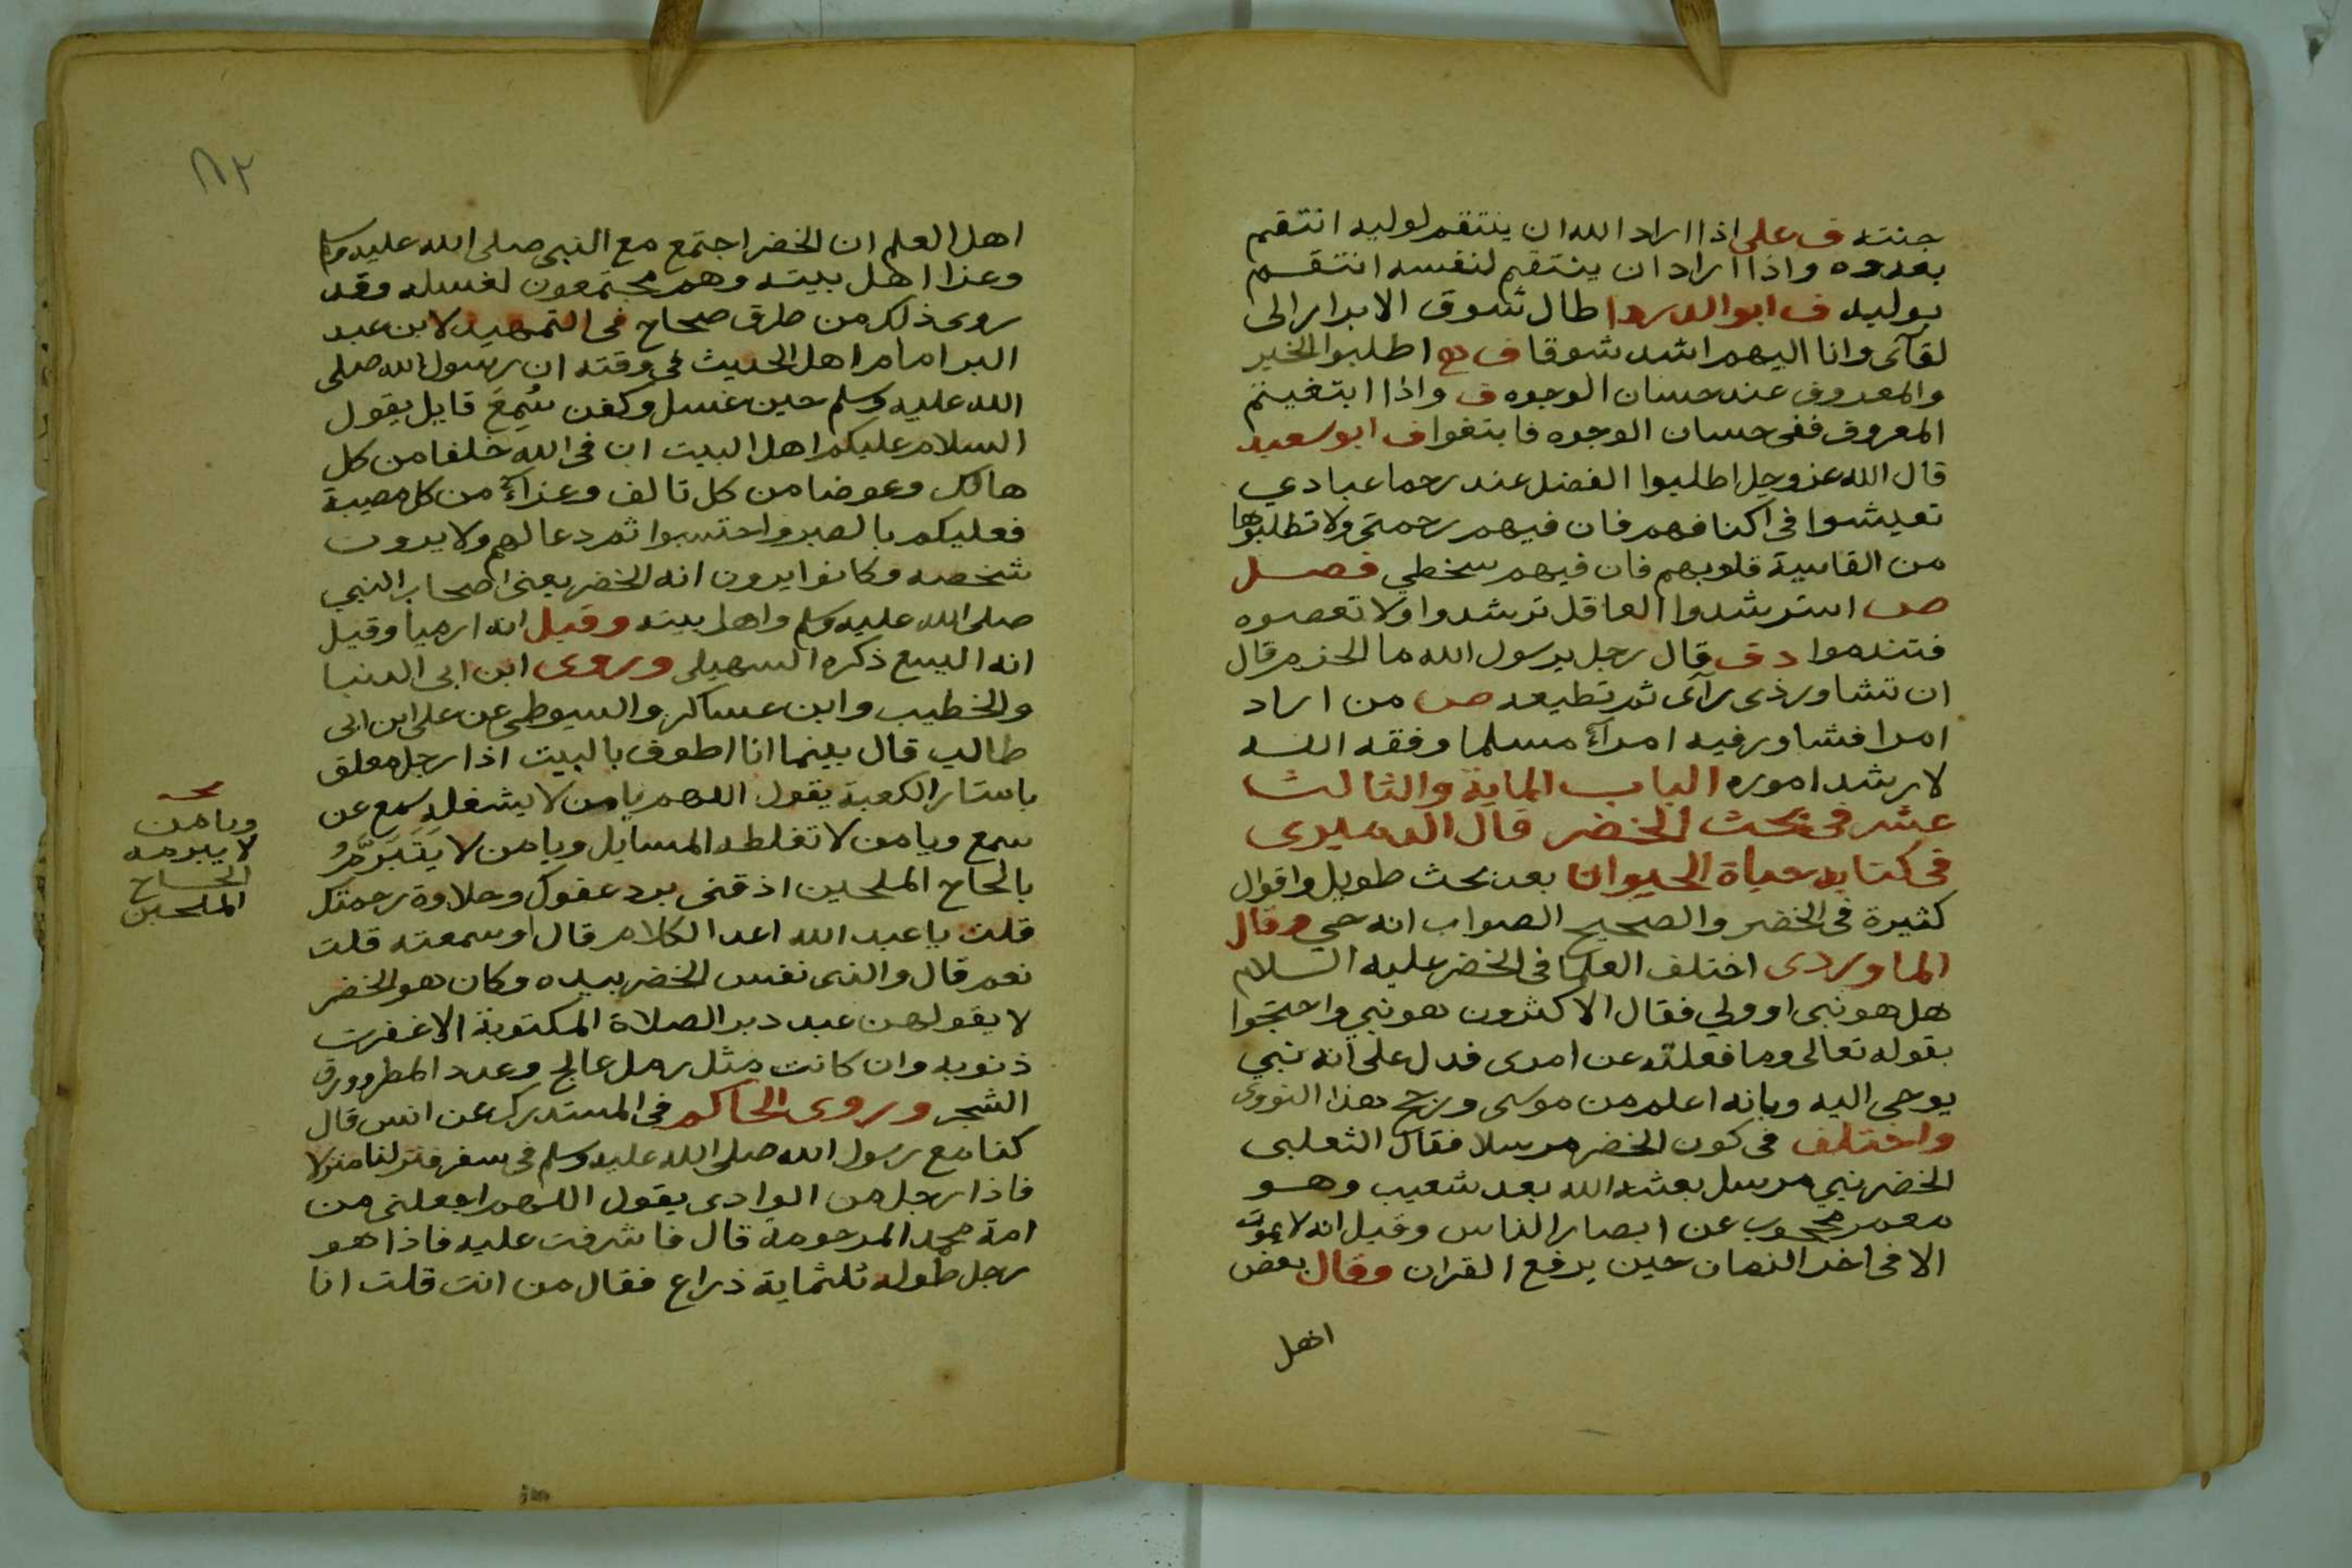 جنته ف على اذا اراد الله ان ينتقم لوليه انتقم
بعدوه واذا اراد ان ينتقم لنفسه انتقم
بوليه ف ابو الدردا طال شوق الابرار الى
لقآئى وانا اليهم اشد شوقا ف اطلبوا الخير
والمعروف عند حسان الوجوه ف واذا ابتغيتم
المعروف ففى حسان الوجوه فابتغوا ف ابو سعيد
قال الله عز وجل اطلبوا الفضل عند رحما عبادي
تعيشوا فى اكنافهم فان فيهم رحمتى ولا تطلبوها
من القاسية قلوبهم فان فيهم سخطي فصل
ص استرشدوا العاقل ترشدوا ولا تعصوه
فتندموا د ف قال رجل يرسول الله ما الحزم قال
ان تشاور ذى رآى ثم تطيعه ص من اراد
امرا فشاور فيه امرآء مسلما وفقه الله
لارشد اموره الباب الماية والثالث
عشر فى بحث الخضر قال الدميرى
فى كتابه حياة الحيوان بعد بحث طويل واقوال
كثيرة فى الخضر والصحيح الصواب انه حي وقال
الماوردى اختلف العلما فى الخضر عليه السلام
هل هو نبى او ولي فقال الاكثرون هو نبي واحتجوا
بقوله تعالى وما فعلته عن امرى فدل على انه نبي
يوحى اليه وبانه اعلم من موسى ورجح هذا النووى
واختلف فى كون الخضر مرسلا فقال الثعلبى
الخضر نبي مرسل بعثه الله بعد شعيب وهو
معمر محجوب عن ابصار الناس وقيل انه لا يموت
الا فى اخر الزمان حين يرفع القران وقال بعض
اهل
٨٢
اهل العلم ان الخضر اجتمع مع النبى صلى الله عليه وسلم
وعزا اهل بيته وهم مجتمعون لغسله وقد
روى ذلك من طرق صحاح فى التمهيد لابن عبد
البر امام اهل الحديث فى وقته ان رسول الله صلى
الله عليه وسلم حين غسل وكفن سُمِعَ قايل يقول
السلام عليكم اهل البيت ان فى الله خلفا من كل
هالك وعوضا من كل تالف وعزآء من كل مصيبة
فعليكم بالصبر واحتسبوا ثم دعا لهم ولا يرون
شخصه وكانوا يرون انه الخضر يعنى اصحاب النبي
صلى الله عليه وسلم واهل بيته وقيل انه ارميا وقيل
انه اليسع ذكره السهيلى وروى ابن ابى الدنيا
والخطيب وابن عساكر والسيوطى عن على ابن ابى
طالب قال بينما انا اطوف بالبيت اذا رجل معلق
باستار الكعبة يقول اللهم يا من لا يشغله سمع عن
سمع ويا من لا تغلطه المسايل ويا من لا يَتَبَرَّمُ
بالحاح الملحين اذقنى برد عفوك وحلاوة رحمتك
قلت يا عبد الله اعد الكلام قال او سمعته قلت
نعم قال والذى نفس الخضر بيده وكان هو الخضر
لا يقولهن عبد دبر الصلاة المكتوبة الا غفرت
ذنوبه وان كانت مثل رمل عالج وعدد المطر وورق
الشجر وروى الحاكم فى المستدرك عن انس قال
كنا مع رسول الله صلى الله عليه وسلم فى سفر فنزلنا منزلا
فاذا رجل من الوادى يقول اللهم اجعلنى من
امة محمد المرحومة قال فاشرفت عليه فاذا هو
رجل طوله ثلثماية ذراع فقال من انت قلت انا
ويا من
لا يبرمه
الحاح
الملحين